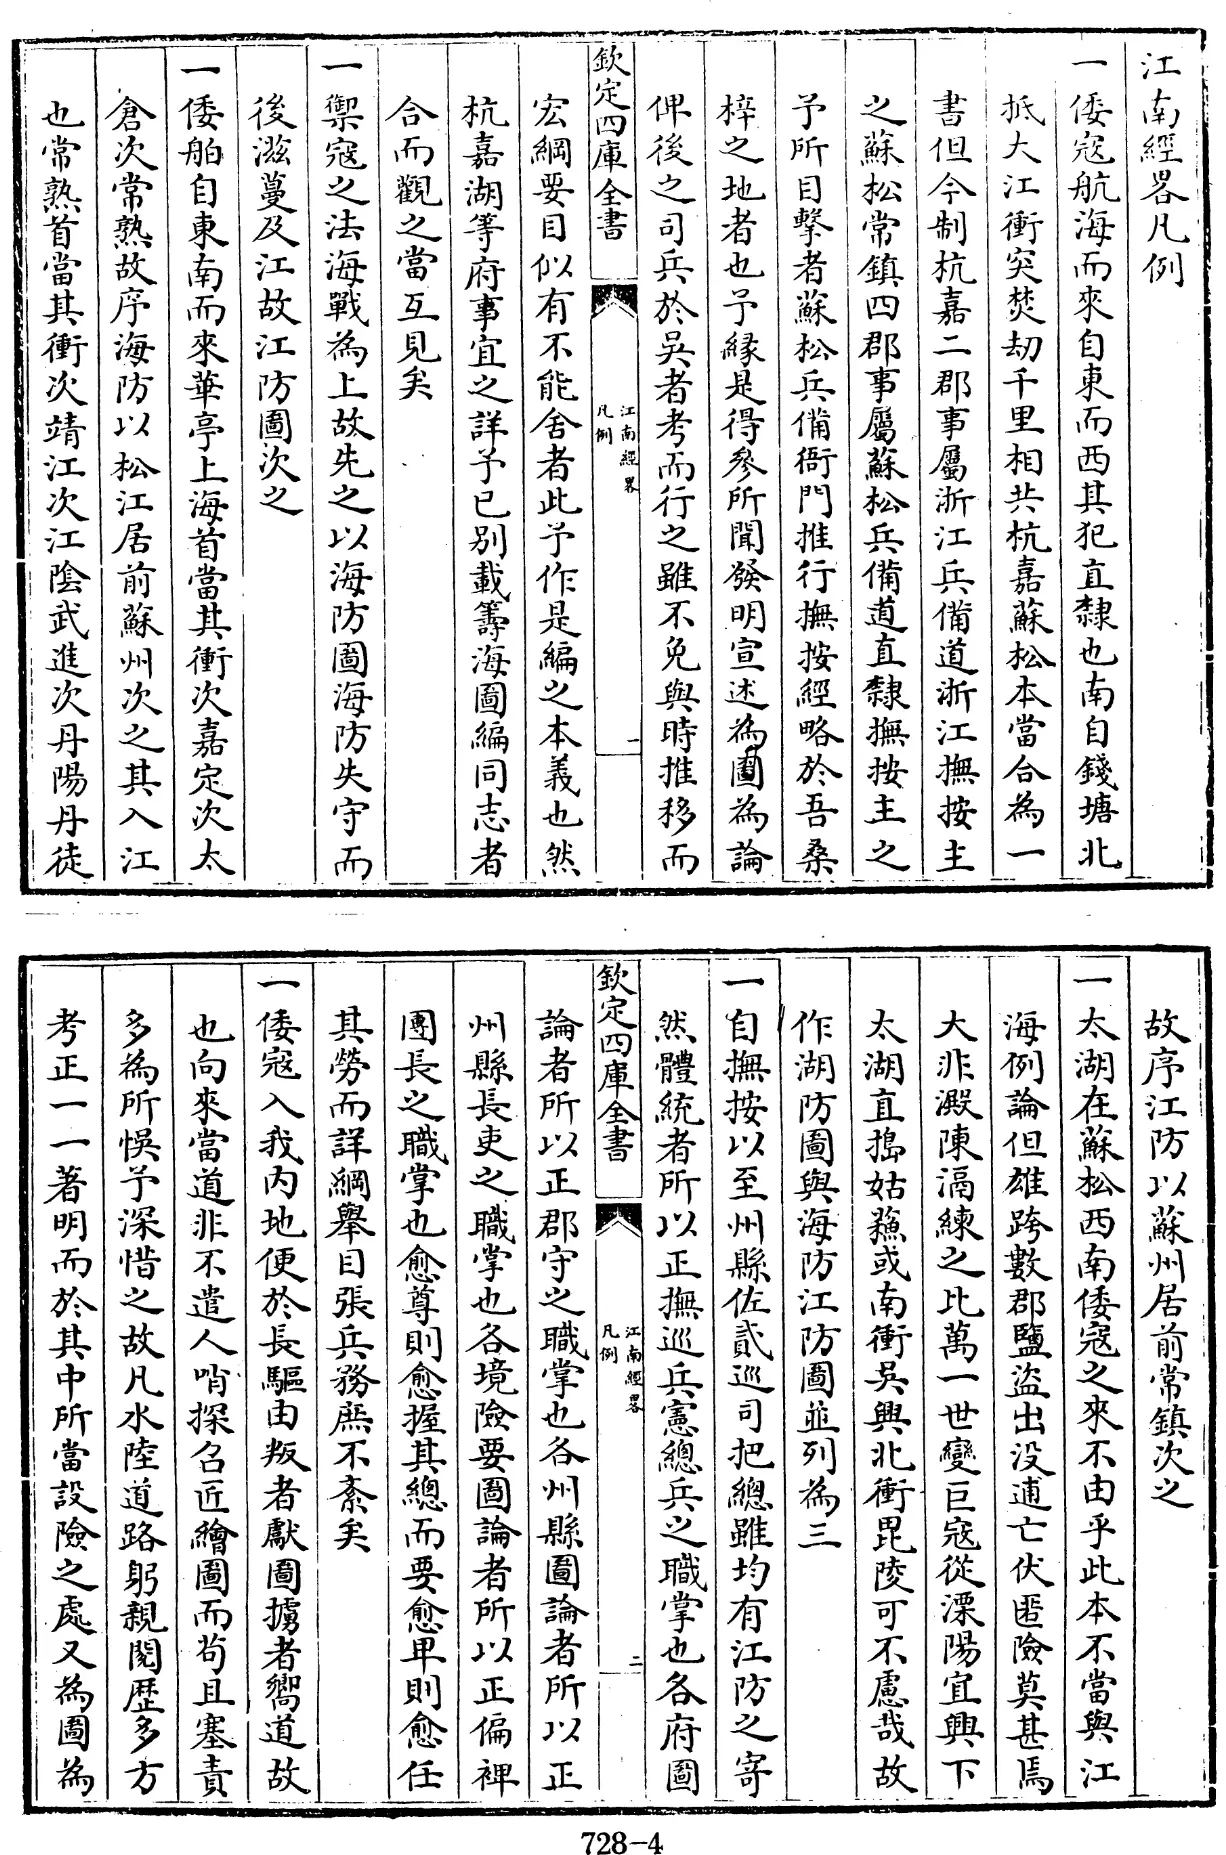 江南經畧凡例
一倭寇航海而來自東而西其犯直隸也南自錢塘北
抵大江衝突焚刼千里相共杭嘉蘇松本當合為一
書但今制杭嘉二郡事屬浙江兵備道浙江撫按主
之蘇松常鎮四郡事屬蘇松兵備道直隸撫按主之
予所目擊者蘇松兵備衙門推行撫按經略於吾桑
梓之地者也予縁是得參所聞發明宣述為圖為論
俾後之司兵於吳者考而行之雖不免與時推移而
欽定四庫全書
江南經畧
凡例
一
宏綱要目似有不能舍者此予作是編之本義也然
杭嘉湖等府事宜之詳予已别載籌海圖編同志者
合而觀之當互見矣
一禦寇之法海戰為上故先之以海防圖海防失守而
後滋蔓及江故江防圖次之
一倭舶自東南而來華亭上海首當其衝次嘉定次太
倉次常熟故序海防以松江居前蘇州次之其入江
也常熟首當其衝次靖江次江陰武進次丹陽丹徒
故序江防以蘇州居前常鎮次之
一太湖在蘇松西南倭寇之來不由乎此本不當與江
海例論但雄跨數郡鹽盜出没逋亡伏匿險莫甚焉
大非澱陳滆練之比萬一世變巨寇從溧陽宜興下
太湖直搗姑蘇或南衝吳興北衝毘陵可不慮哉故
作湖防圖與海防江防圖並列為三
一自撫按以至州縣佐貳巡司把總雖均有江防之寄
然體統者所以正撫巡兵憲總兵之職掌也各府圖
欽定四庫全書
江南經畧
凡例
二
論者所以正郡守之職掌也各州縣圖論者所以正
州縣長吏之職掌也各境險要圖論者所以正偏裨
團長之職掌也愈尊則愈握其總而要愈卑則愈任
其勞而詳綱舉目張兵務庶不紊矣
一倭寇入我内地便於長驅由叛者獻圖擄者嚮道故
也向來當道非不遣人哨探召匠繪圖而茍且塞責
多為所悞予深惜之故凡水陸道路躬親閱歷多方
考正一一著明而於其中所當設險之處又為圖為
728-4